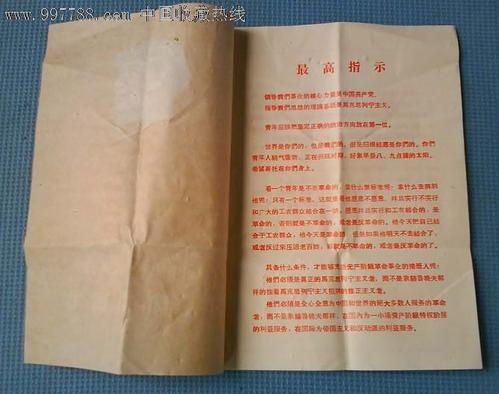 www.997788.com 中国收藏热线
最高指示
領导我們事业的核心力量是中国共产党。
指导我們思想的理論基础是馬克思列宁主义。
青年应該把坚定正确的政治方向放在第一位。
世界是你們的，也是我們的，但是归根結底是你們的。你們
青年人朝气蓬勃，正在兴旺时期，好象早晨八、九点鐘的太阳。
希望寄托在你們身上。
看一个青年是不是革命的，拿什么做标准呢？拿什么去辨別
他呢？只有一个标准，这就是看他愿意不愿意、并且实行不实行
和广大的工农群众結合在一块。愿意并且实行和工农結合的，是
革命的，否則就是不革命的，或者是反革命的。他今天把自己結
合于工农群众，他今天是革命的；但是如果他明天不去結合了，
或者反过来压迫老百姓，那就是不革命的，或者是反革命的了。
具备什么条件，才能够充当无产阶級革命事业的接班人呢？
他們必須是真正的馬克思列宁主义者，而不是象赫魯曉夫那
样的挂着馬克思列宁主义招牌的修正主义者。
他們必須是全心全意为中国和世界的絕大多数人服务的革命
者，而不是象赫魯曉夫那样，在国內为一小撮资产阶級特权阶层
的利益服务，在国际为帝国主义和反动派的利益服务。